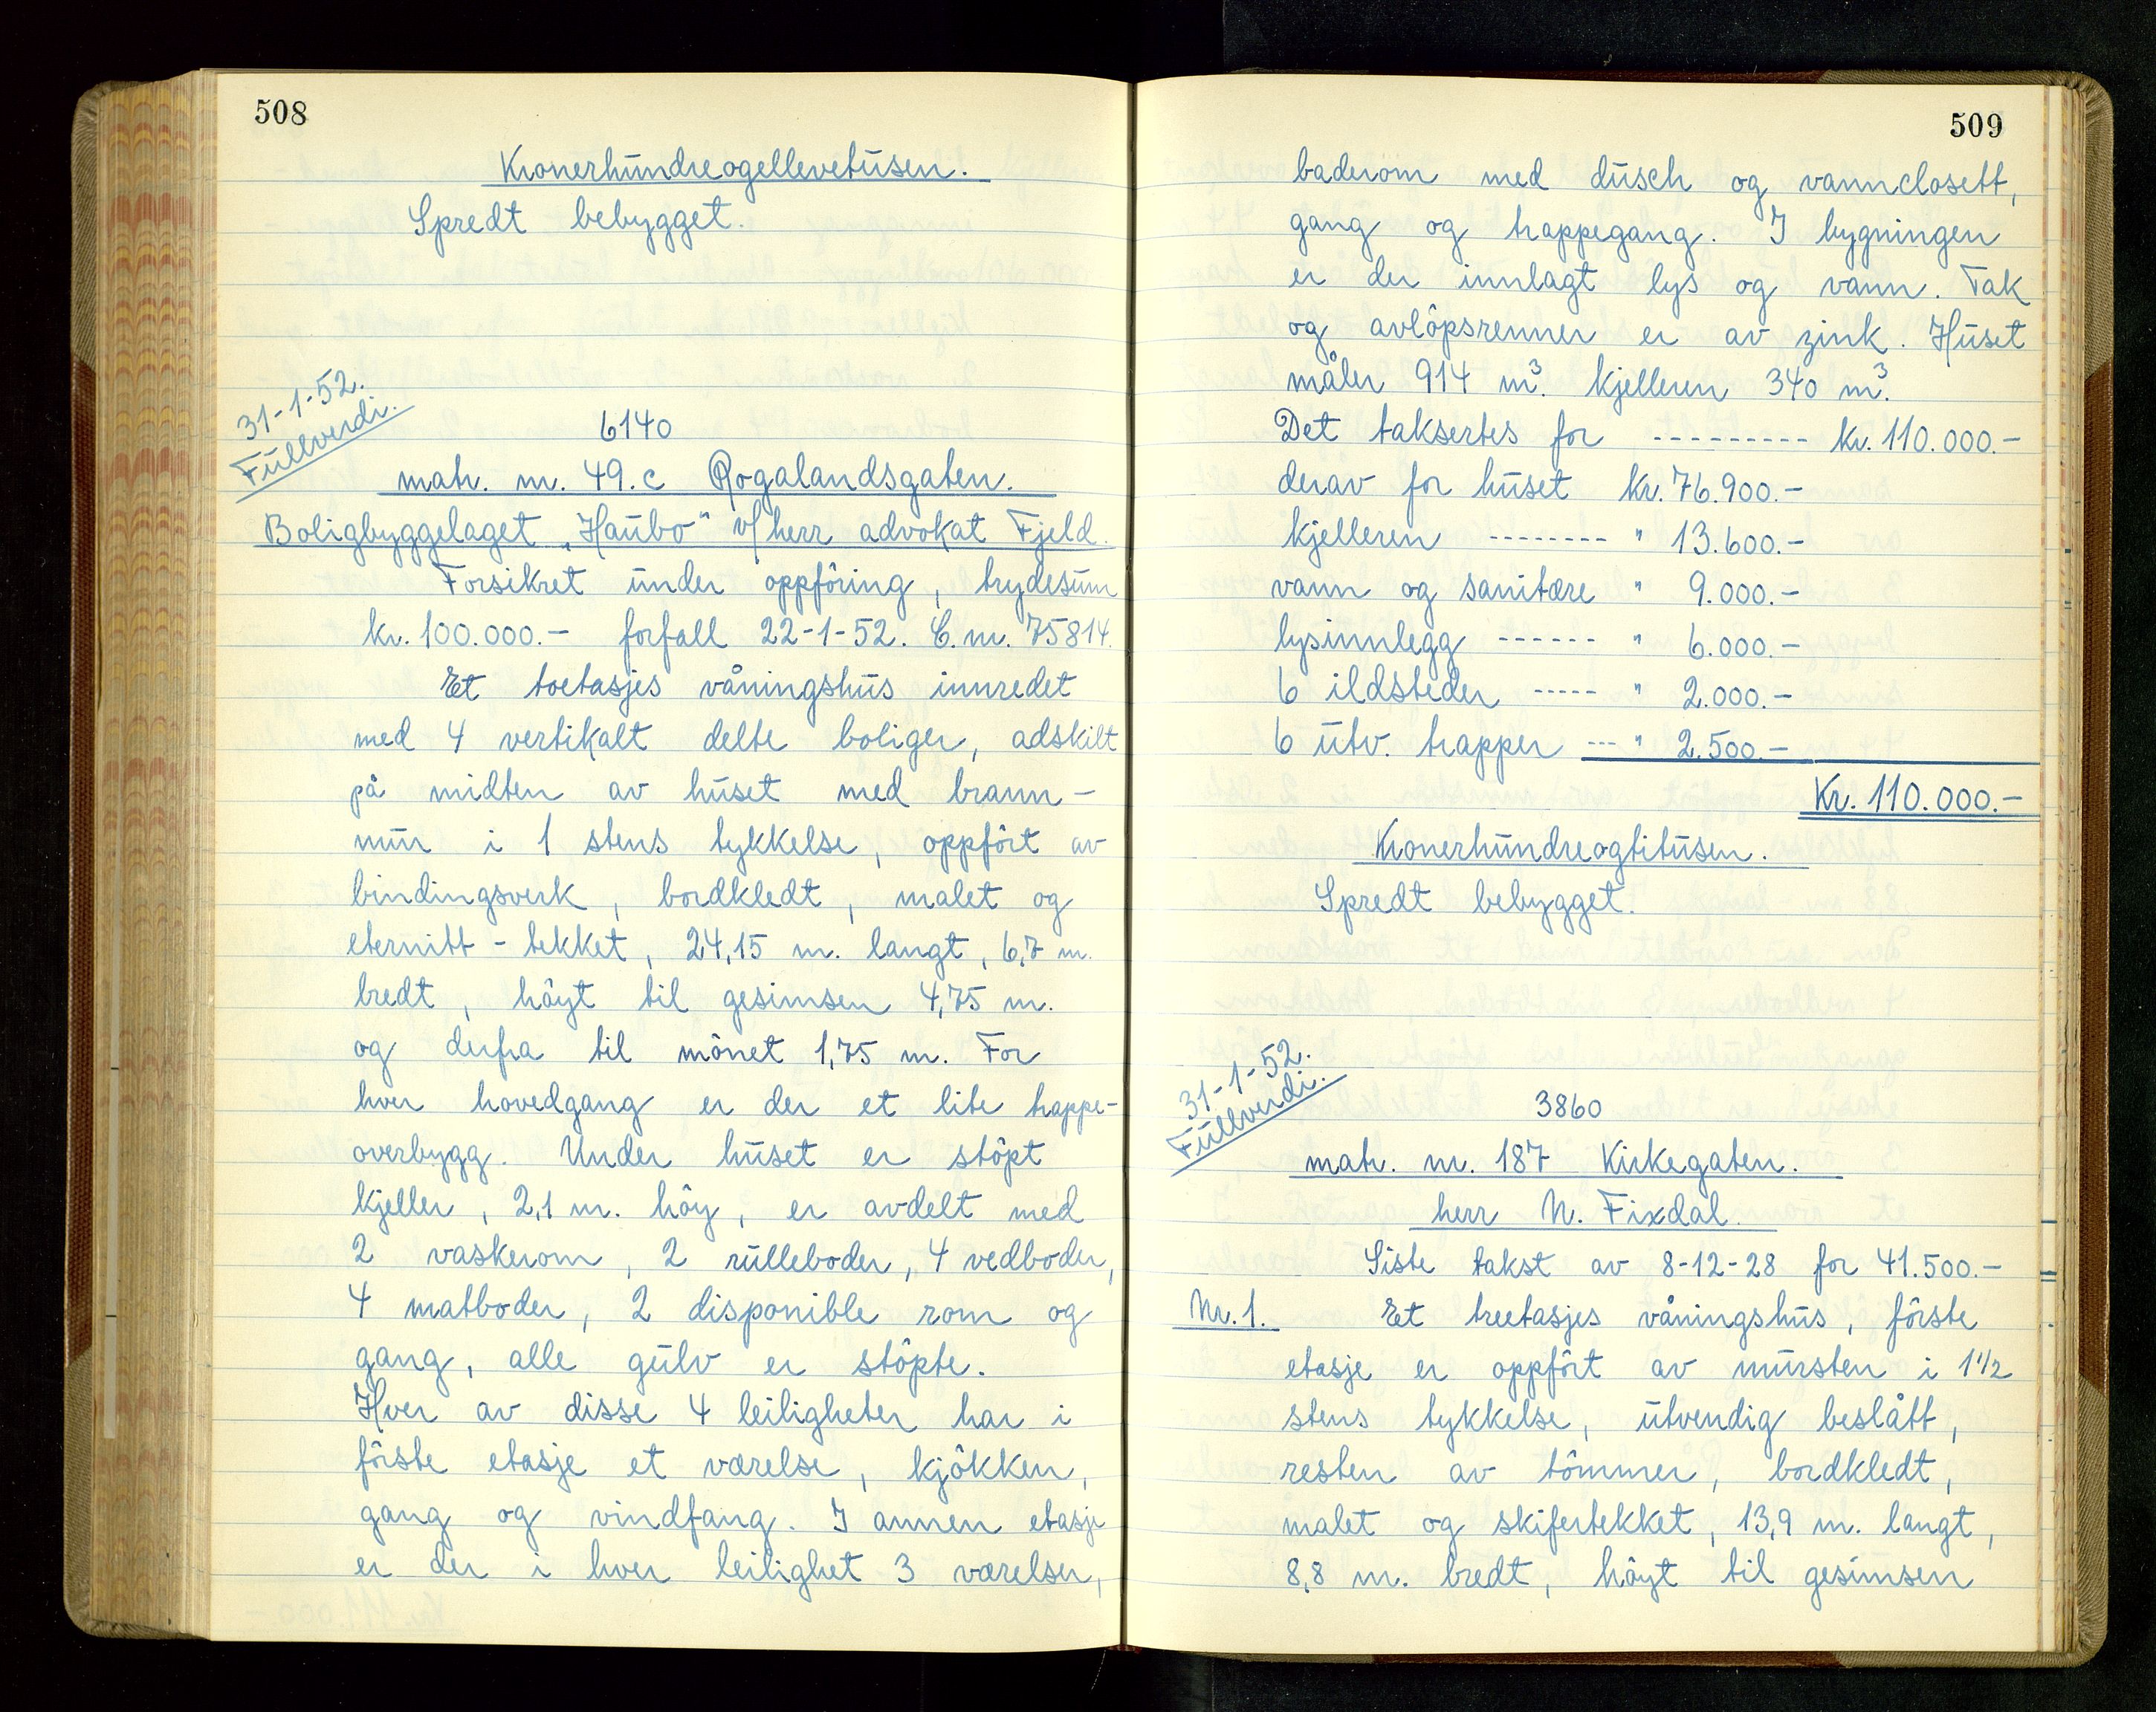 508
Kronerhundreogellevetusen.
Spredt bebygget.
31-1-52.
Fullverdi.
6140
matr. nr. 49.c Rogalandsgaten.
Boligbyggelaget „Haubo" v/herr advokat Fjeld.
Forsikret under oppföring, trydesum
kr. 100.000.- forfall 22-1-52. C.nr. 75814.
Et toetasjes våningshus innredet
med 4 vertikalt delte boliger, adskilt
på midten av huset med brann-
mur i 1 stens tykkelse, oppfört av
bindingsverk, bordkledt, malet og
eternitt-tekket, 24,15 m. langt, 6,7 m.
bredt, höyt til gesimsen 4,75 m.
og derfra til mönet 1,75 m. For
hver hovedgang er der et lite trappe-
overbygg. Under huset er stöpt
kjeller, 2,1 m. höy, er avdelt med
2 vaskerom, 2 rulleboder, 4 vedboder,
4 matboder, 2 disponible rom og
gang, alle gulv er stöpte.
Hver av disse 4 leiligheter har i
förste etasje et værelse, kjökken,
gang og vindfang. I annen etasje
er der i hver leilighet 3 værelser,
509
baderom med dusch og vannclosett,
gang og trappegang. I bygningen
er der innlagt lys og vann. Tak
og avlöpsrenner er av zink. Huset
måler 914 m³. kjelleren 340 m³.
Det taksertes for --------- kr. 110.000.-
derav for huset kr. 76.900.-
kjelleren -------- " 13.600.-
vann og sanitære " 9.000.-
lysinnlegg ------ " 6.000.-
6 ildsteder ----- " 2.000.-
6 utv. trapper --- " 2.500.-
Kr. 110.000.-
Kronerhundreogtitusen.
Spredt bebygget.
31-1-52.
Fullverdi.
3860
matr. nr. 187 Kirkegaten.
herr N. Fixdal.
Siste takst av 8-12-28 for 41.500.-
Nr. 1. Et treetasjes våningshus, förste
etasje er oppfört av mursten i 1½
stens tykkelse, utvendig beslått,
resten av tömmer, bordkledt,
malet og skifertekket, 13,9 m. langt,
8,8 m. bredt, höyt til gesimsen